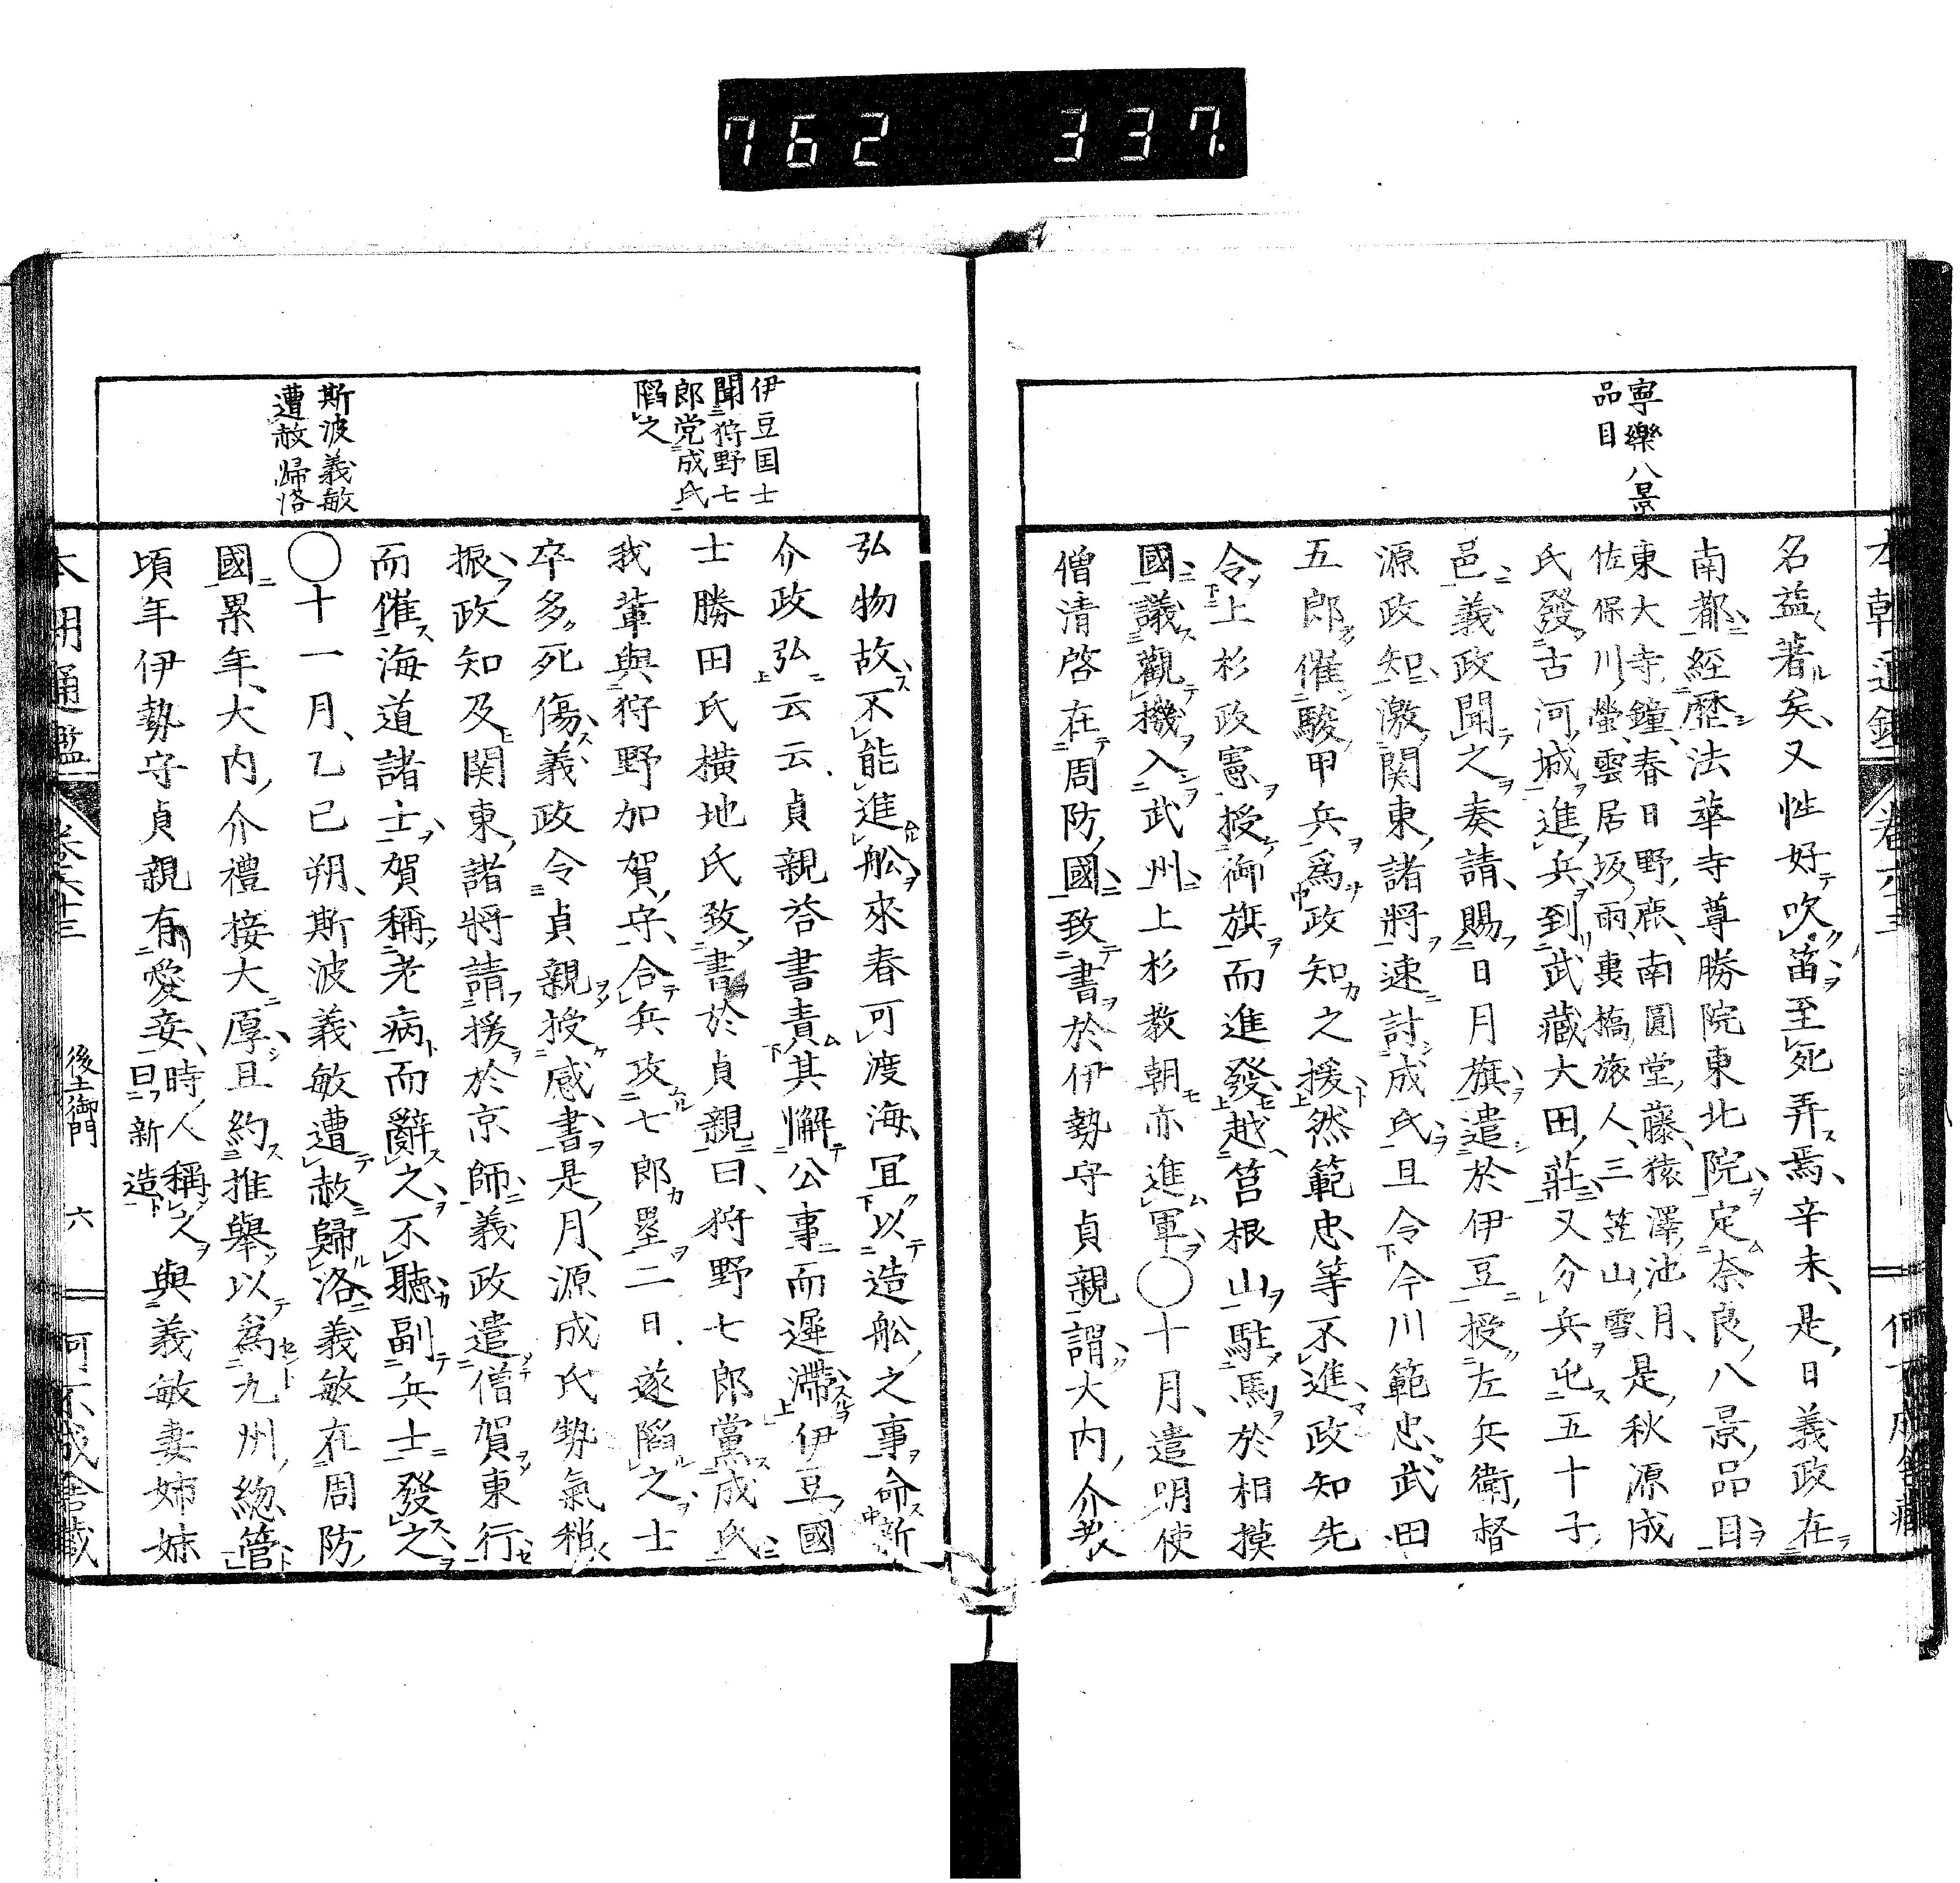 762 337
寧樂八景
品目
名益著矣又性好吹笛至死弄焉辛未是日義政在
南都經歷法華寺尊勝院東北院定奈良八景品目
東大寺鐘春日野鹿南圓堂藤猿澤池月
佐保川螢雲居坂雨轟橋旅人三笠山雪
是秋源成
氏發古河城進兵到武藏大田莊又分兵屯五十子
邑義政聞之奏請賜日月旗遣於伊豆授左兵衛督
源政知激関東諸將速討成氏且令今川範忠武田
五郎催駿甲兵爲政知之援然範忠等不進政知先
令上杉政憲授御旗而進發越筥根山駐馬於相摸
國議觀機入武州上杉教朝亦進軍○十月遣明使
僧清啓在周防國致書於伊勢守貞親謂大内介教
伊豆国士
聞狩野七
郎党成氏
陷之
斯波義敏
遭赦歸洛
弘物故不能進舩來春可渡海冝以造舩之事命新
介政弘云云貞親答書責其懈公事而遲滯伊豆國
士勝田氏横地氏致書於貞親曰狩野七郎黨成氏
我輩與狩野加賀守合兵攻七郎壘二日遂陷之士
卒多死傷義政令貞親授感書是月源成氏勢氣稍
振政知及関東諸將請援於京師義政遣僧賀東行
而催海道諸士賀稱老病而辭之不聽副兵士發之
○十一月乙已朔斯波義敏遭赦歸洛義敏在周防
國累年大内介禮接大厚且約推舉以爲九州総管
頃年伊勢守貞親有愛妾時人稱之
曰新造
與義敏妻姉妹
本朝通鑑 卷六十三 後土御門 六